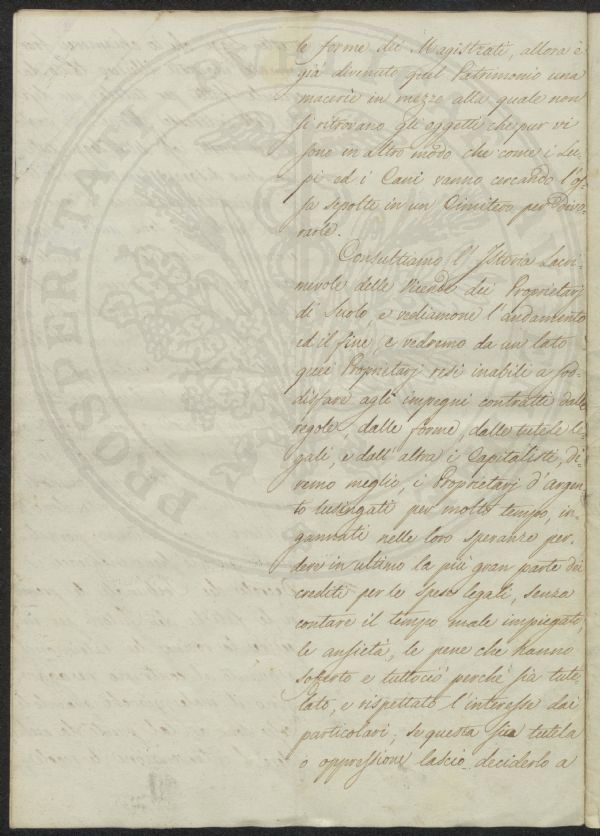 le forme dei Magistrati, allora è
già divenuto quel Patrimonio una
macerie in mezzo alla quale non
si ritrovano gli oggetti che pur vi
sono in altro modo che come i Lu-
pi ed i Cani vanno cercando l'os-
sa sepolte in un Cimitero per divo-
rarle.
Consultiamo l'Istoria Lacri-
mevole delle Vicende dei Proprietarj
di Suolo, e vediamone l'andamento
ed il fine, e vedremo da un lato
quei Proprietarj resi inabili a sod-
disfare agli impegni contratti dalle
regole, dalle forme, dalle tutele le-
gali, e dall'altra i Capitalisti, di-
remo meglio, i Proprietarj d'Argen-
to lusingati per molto tempo, in-
gannati nelle loro speranze per-
dere in ultimo la più gran parte dei
crediti per le spese legali, senza
contare il tempo male impiegato,
le ansietà, le pene che hanno
soferto e tuttociò perchè sia tute-
lato, e rispettato l'interesse dei
particolari; se questa sia tutela
o oppressione lascio deciderlo a
PROSPERITATI